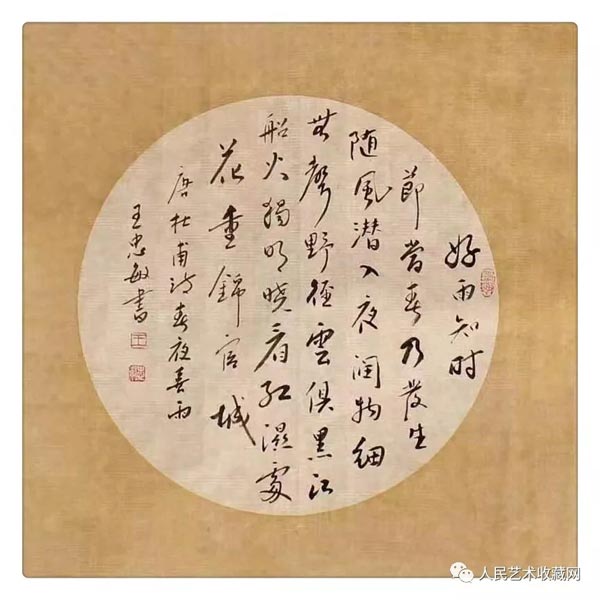 好雨知时
節當春乃發生
随風潜入夜潤物細
無聲野徑雲俱黑江
船火獨明曉看紅濕處
花重錦官城
唐杜甫詩春夜喜雨
王忠敏書
人民艺术收藏网